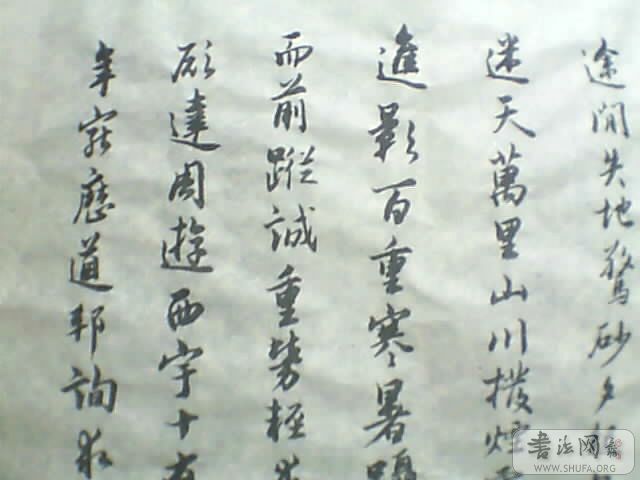 途閒失地驚砂夕
迷天萬里山川撥煙
進影百重寒暑躡
而前蹤誠重勞輕求
願達周遊西宇十有
年窮歷道邦詢求
書法网
WWW.SHUFA.ORG